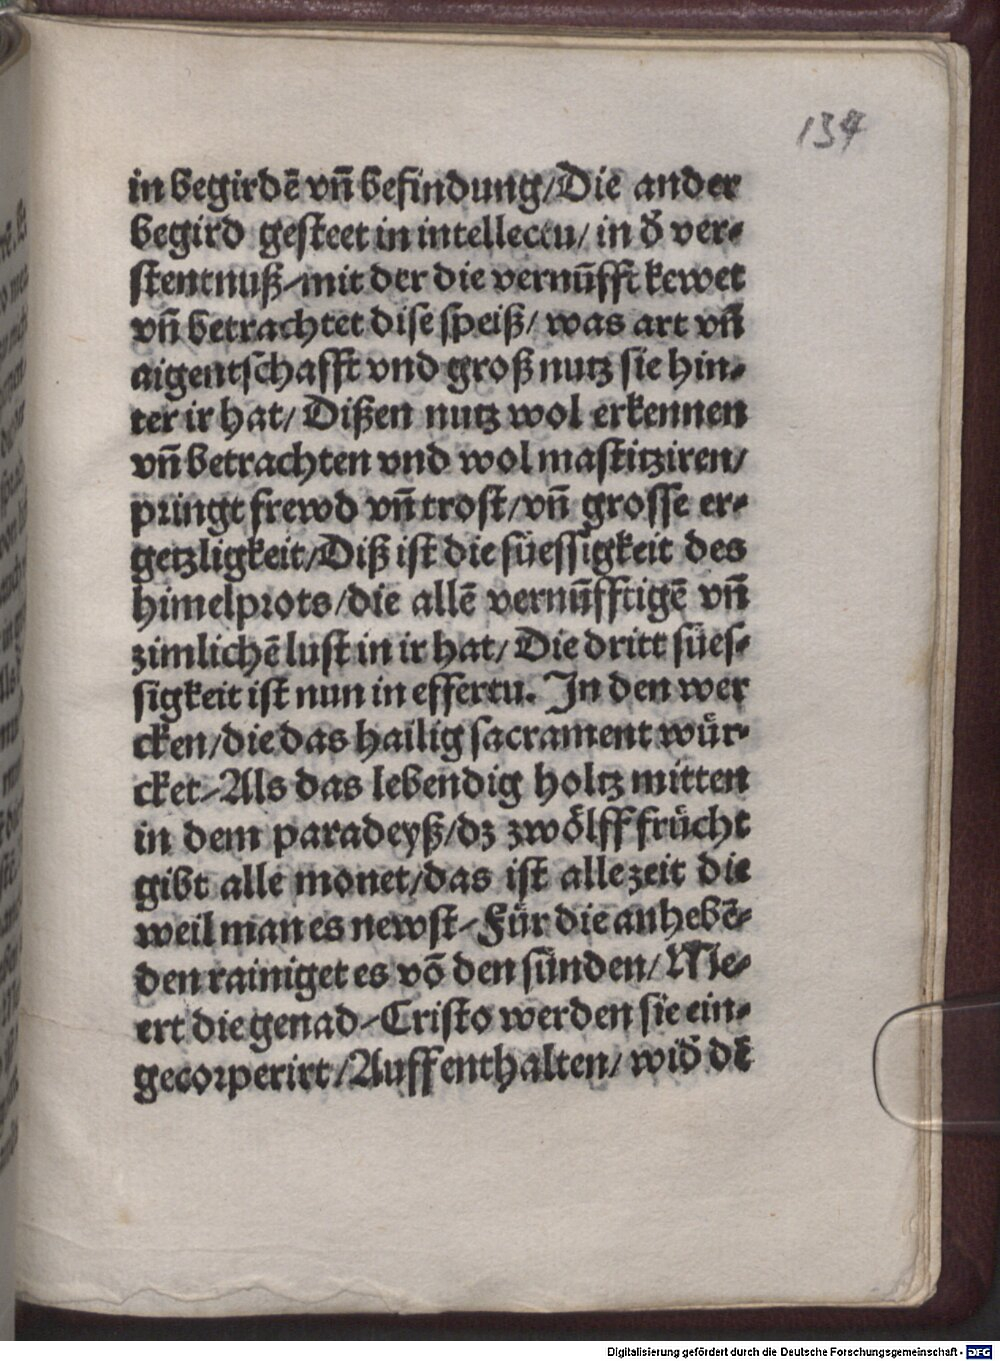 134
in begirdē vñ befindung/Die ander
begird gesteet in intellectu/ in d̕ ver-
stentnuß-mit der die vernūfft kewet
vñ betrachtet dise speiß/ was art vñ
aigentschafft vnd groß nutz sie hin-
ter ir hat/ Dißen nutz wol erkennen
vñ betrachten vnd wol mastitziren/
pringt frewd vñ trost/vñ grosse er-
getzligkeit/Diß ist die süessigkeit des
himelprots/die allē vernūfftigē vñ
zimlichē lust in ir hat/ Die dritt sües-
sigkeit ist nun in effectu. In den wer
cken/die das hailig sacrament wür-
cket-Als das lebendig holtz mitten
in dem paradeyß/dz zwölff frücht
gibt alle monet/das ist allezeit die
weil man es newst-Für die anhebē-
den rainiget es vō den sünden/ Me-
ert die genad-Cristo werden sie ein-
gecorperirt/Auffenthalten/ wid̕ dē
Digitalisierung gefördert durch die Deutsche Forschungsgemeinschaft - DFG